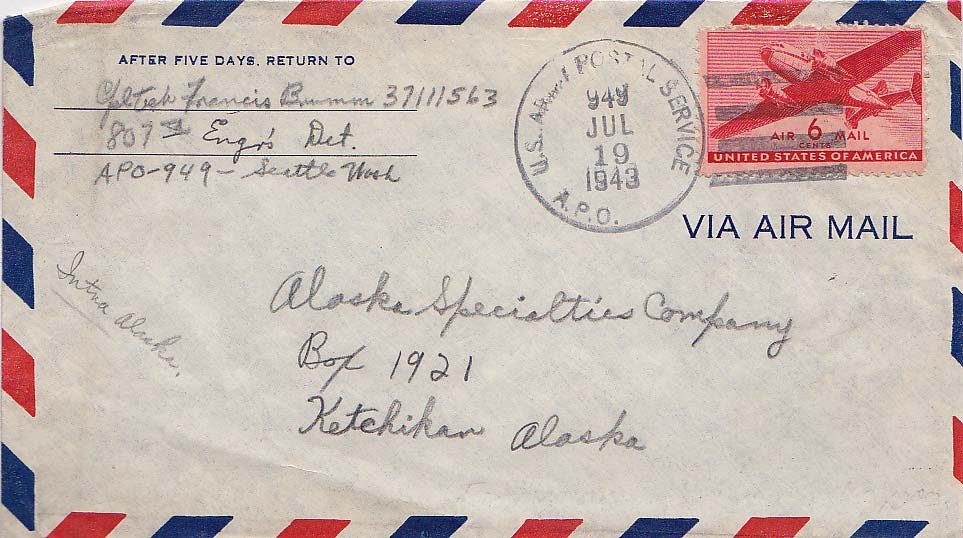 AFTER FIVE DAYS, RETURN TO
Francis Brumm 37111563
807th Engr's Det.
APO-949- Seattle Wash
U.S. ARMY POSTAL SERVICE
949
JUL
19
1943
A.P.O.
AIR 6 MAIL
CENTS
UNITED STATES OF AMERICA
VIA AIR MAIL
Intra Alaska.
Alaska Specialties Company
Box 1921
Ketchikan Alaska